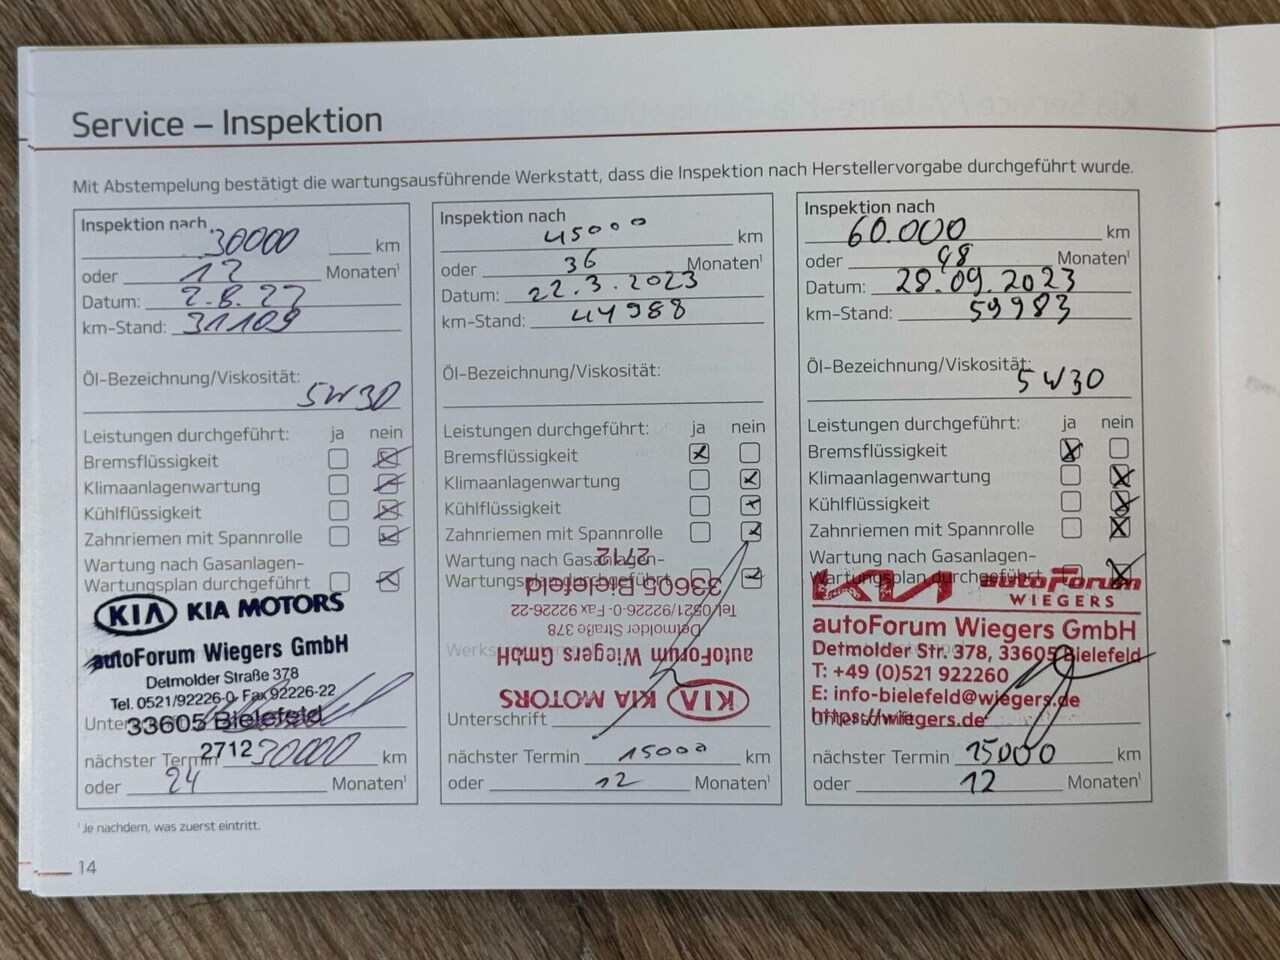 Service – Inspektion
Mit Abstempelung bestätigt die wartungsausführende Werkstatt, dass die Inspektion nach Herstellervorgabe durchgeführt wurde.
Inspektion nach
30000 km
oder 12 Monaten¹
Datum: 2.8.22
km-Stand: 31109
Öl-Bezeichnung/Viskosität:
5W30
Leistungen durchgeführt: ja nein
Bremsflüssigkeit
Klimaanlagenwartung
Kühlflüssigkeit
Zahnriemen mit Spannrolle
Wartung nach Gasanlagen-
Wartungsplan durchgeführt
KIA KIA MOTORS
autoForum Wiegers GmbH
Detmolder Straße 378
Tel. 0521/92226-0· Fax 92226-22
33605 Bielefeld
2712
nächster Termin 30000 km
oder 24 Monaten¹
Inspektion nach
45000 km
oder 36 Monaten¹
Datum: 22.3.2023
km-Stand: 44988
Öl-Bezeichnung/Viskosität:
Leistungen durchgeführt: ja nein
Bremsflüssigkeit
Klimaanlagenwartung
Kühlflüssigkeit
Zahnriemen mit Spannrolle
Wartung nach Gasanlagen-
Wartungsplan durchgeführt
KIA KIA MOTORS
autoForum Wiegers GmbH
Detmolder Straße 378
Tel. 0521/92226-0· Fax 92226-22
33605 Bielefeld
2712
Unterschrift
nächster Termin 15000 km
oder 12 Monaten¹
Inspektion nach
60.000 km
oder 48 Monaten¹
Datum: 28.09.2023
km-Stand: 59983
Öl-Bezeichnung/Viskosität:
5W30
Leistungen durchgeführt: ja nein
Bremsflüssigkeit
Klimaanlagenwartung
Kühlflüssigkeit
Zahnriemen mit Spannrolle
Wartung nach Gasanlagen-
Wartungsplan durchgeführt
KIA autoForum
WIEGERS
autoForum Wiegers GmbH
Detmolder Str. 378, 33605 Bielefeld
T: +49 (0)521 922260
E: info-bielefeld@wiegers.de
https://wiegers.de
nächster Termin 15000 km
oder 12 Monaten¹
¹ Je nachdem, was zuerst eintritt.
14